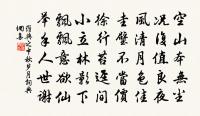 空山本無塵
況復值良夜
風清月色佳
圭璧不當價
徐行苔逕間
小立林影下
飄飄意欲仙
舉手人世謝
中秋步月詞典